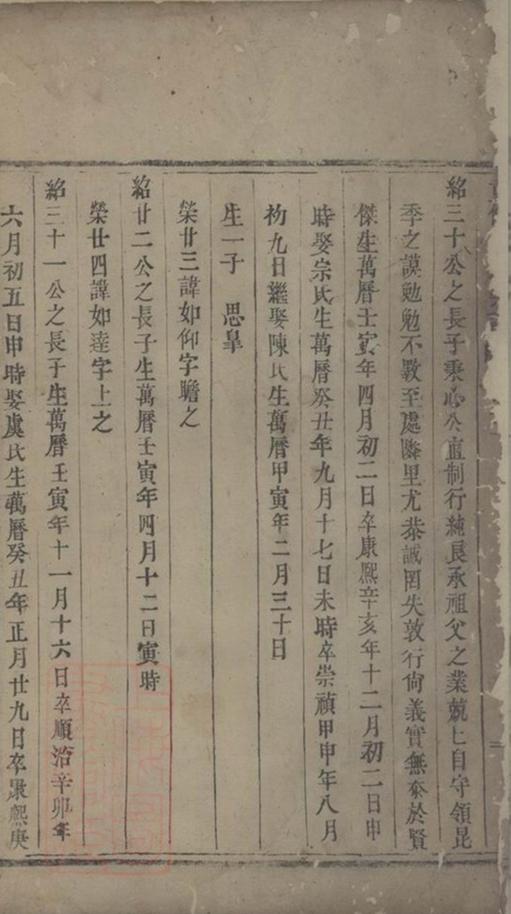 紹三十公之長子秉心公直制行純良承祖父之業兢匕自守領昆
季之謨勉勉不斁至處隣里尤恭誠罔失敦行尙義實無忝於賢
傑生萬曆壬寅年四月初二日卒康熙辛亥年十二月初二日申
時娶宗氏生萬曆癸丑年九月十七日未時卒崇禎甲申年八月
初九日繼娶陳氏生萬曆甲寅年二月三十日
生一子　思皐
榮廿三諱如仰字瞻之
紹廿二公之長子生萬曆壬寅年四月十二日寅時
榮廿四諱如逵字上之
紹三十一公之長子生萬曆壬寅年十一月十六日卒順治辛卯年
六月初五日申時娶虞氏生萬曆癸丑年正月廿九日卒康熙庚